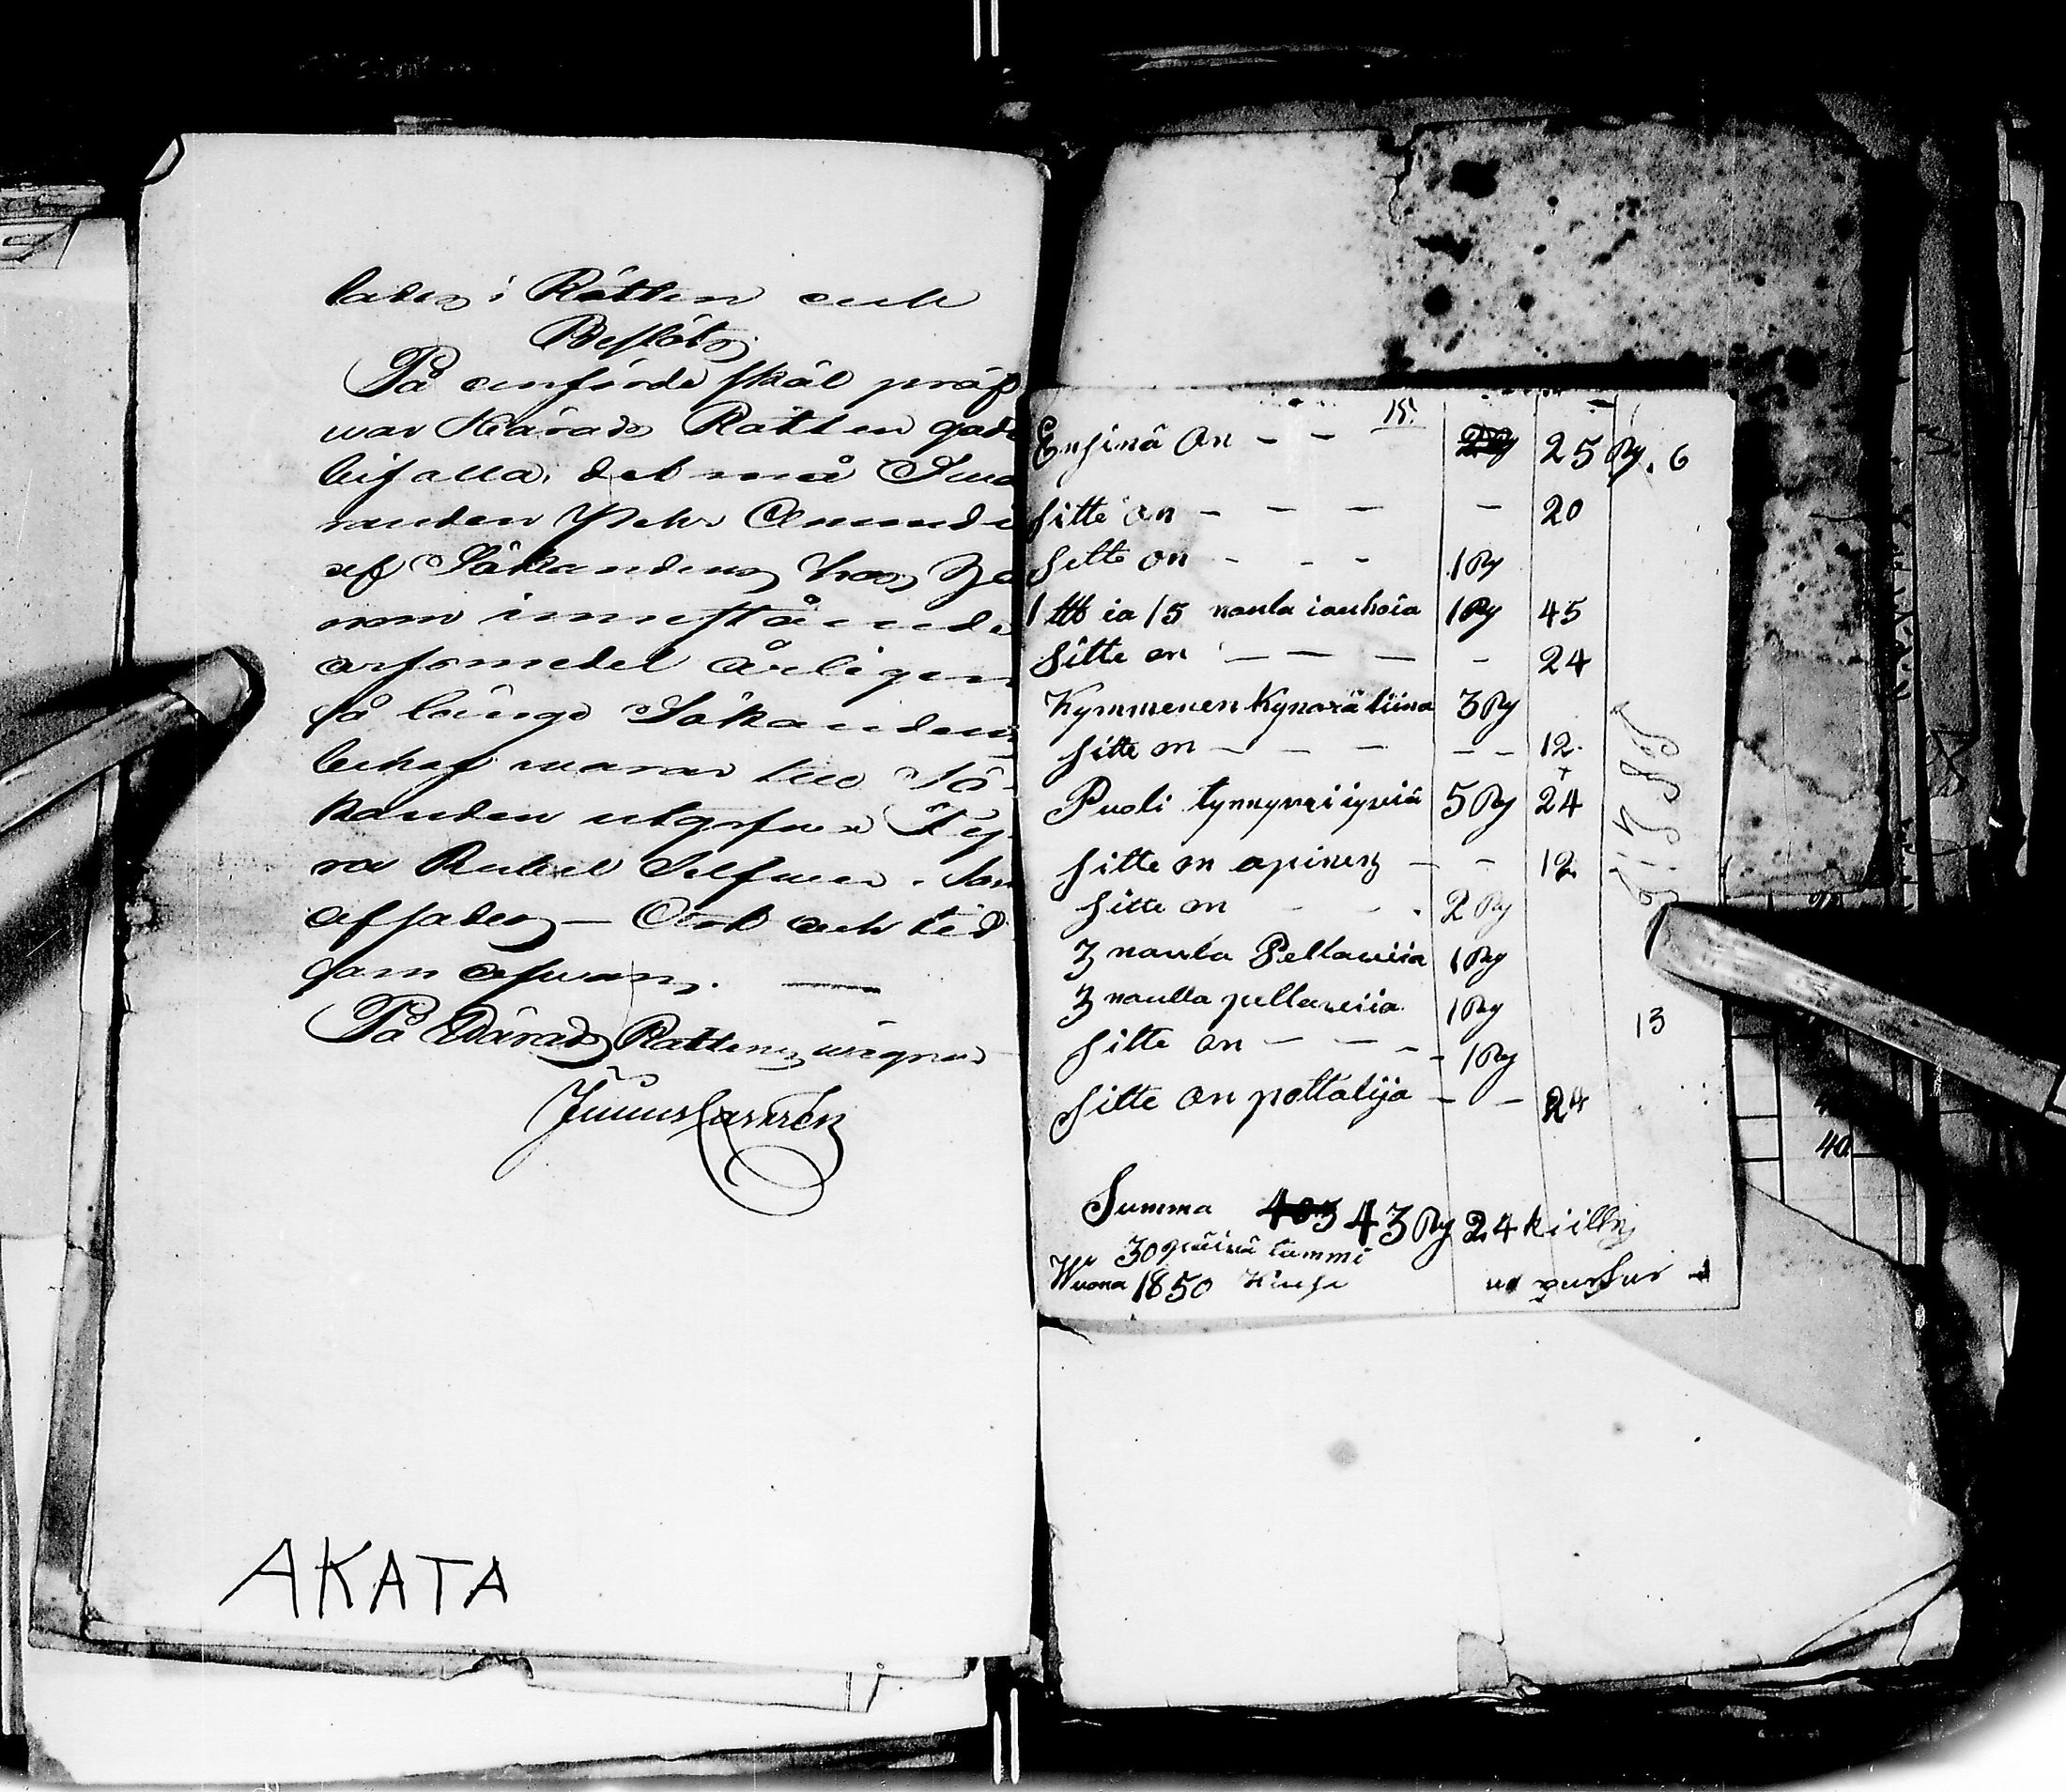 lades i Rätten och
Beslöts;
På anförde skäl pröf
var Härads Rätten godt
bifalla, det må Swa
randen Pehr Amundi
af Sökandens hos ho
nom innestående
arfsmedel årligen
så länge Sökandens
behof warar till Sö-
kanden utgifwa Ty-
ra Rubel Silfwer. Som
afsades — Ort och tid
som ofwan. —
På Härads Rättens wägnar
AKATA
15.
Ensinä on - - 25 Ry. 6
sitte on - - - - 20
sitte on - - - 1 Ry
1 ttb ia 15 naula iauhoia 1 Ry 45
sitte on - - - - 24
Kymmenen kynärä liina 3 Ry
sitte on - - - - - 12.
Puoli tynnyrri iyviä 5 Ry 24
sitte on - - 12
sitte on - - . 2 Ry
3 naula Pellawiia 1 Ry
3 naulla pellaweiia 1 Ry
13
sitte on - - - - 1 Ry
sitte on pottalija - - 24
Summa 43 Ry 24 kiilly
30 päivä tammi
Wuona 1850 Kuusa